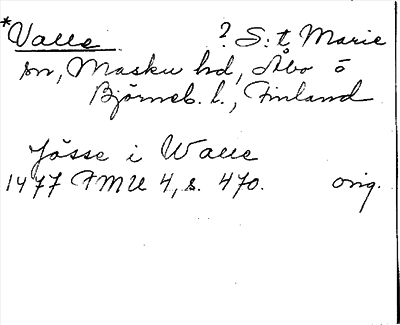 *Valle ? S:t Marie
sn, Masku hd, Åbo o
Björneb. l., Finland
Jösse i Walle
1477 FMU 4, s. 470. orig.